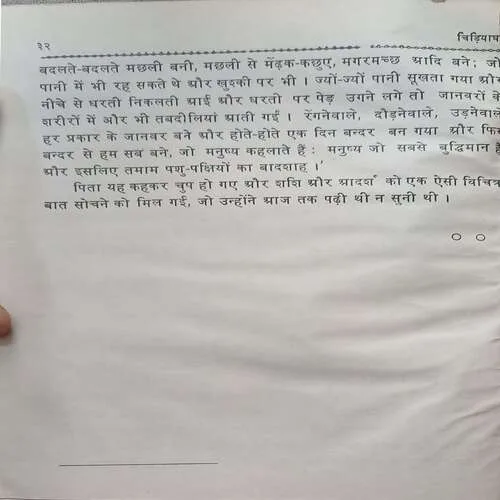 ३२ चिड़ियाघ
बदलते-बदलते मछली बनी, मछली से मेंढ़क-कछुए, मगरमच्छ आदि बने; जो
पानी में भी रह सकते थे और खुश्की पर भी । ज्यों-ज्यों पानी सूखता गया और
नीचे से धरती निकलती आई और धरती पर पेड़ उगने लगे तो जानवरों के
शरीरों में और भी तबदीलियां आती गईं । रेंगनेवाले, दौड़नेवाले, उड़नेवाले
हर प्रकार के जानवर बने और होते-होते एक दिन बन्दर बन गया और फिर
बन्दर से हम सब बने, जो मनुष्य कहलाते हैं : मनुष्य जो सबसे बुद्धिमान है
और इसलिए तमाम पशु-पक्षियों का बादशाह ।'
पिता यह कहकर चुप हो गए और शशि और आदर्श को एक ऐसी विचित्र
बात सोचने को मिल गई, जो उन्होंने आज तक पढ़ी थी न सुनी थी ।